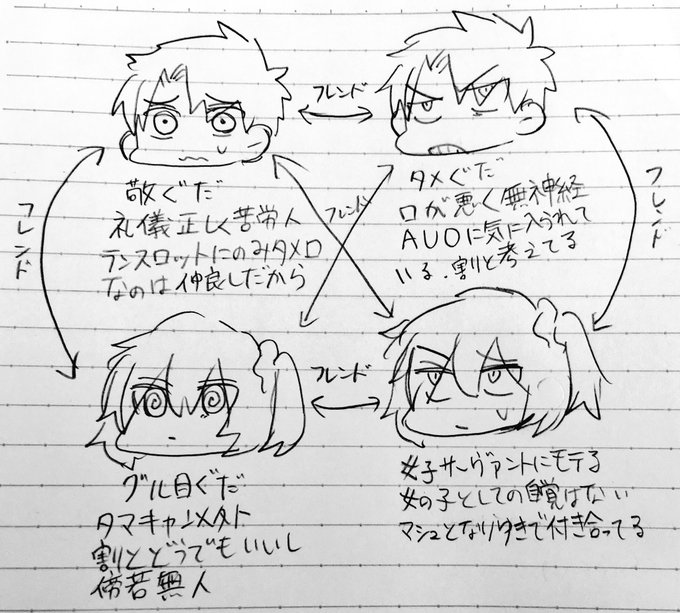 フレンド
敬ぐだ
礼儀正しく苦労人
ランスロットにのみタメ口
なのは仲良しだから
タメぐだ
口が悪く無神経
AUOに気に入られて
いる.割と考えてる
フレンド
フレンド
フレンド
フレンド
グル目ぐだ
タマキャン、メタト
割とどうでもいいし
傍若無人
女子サーヴァントにモテる
女の子としての自覚はない
マシュとなりゆきで付き合ってる